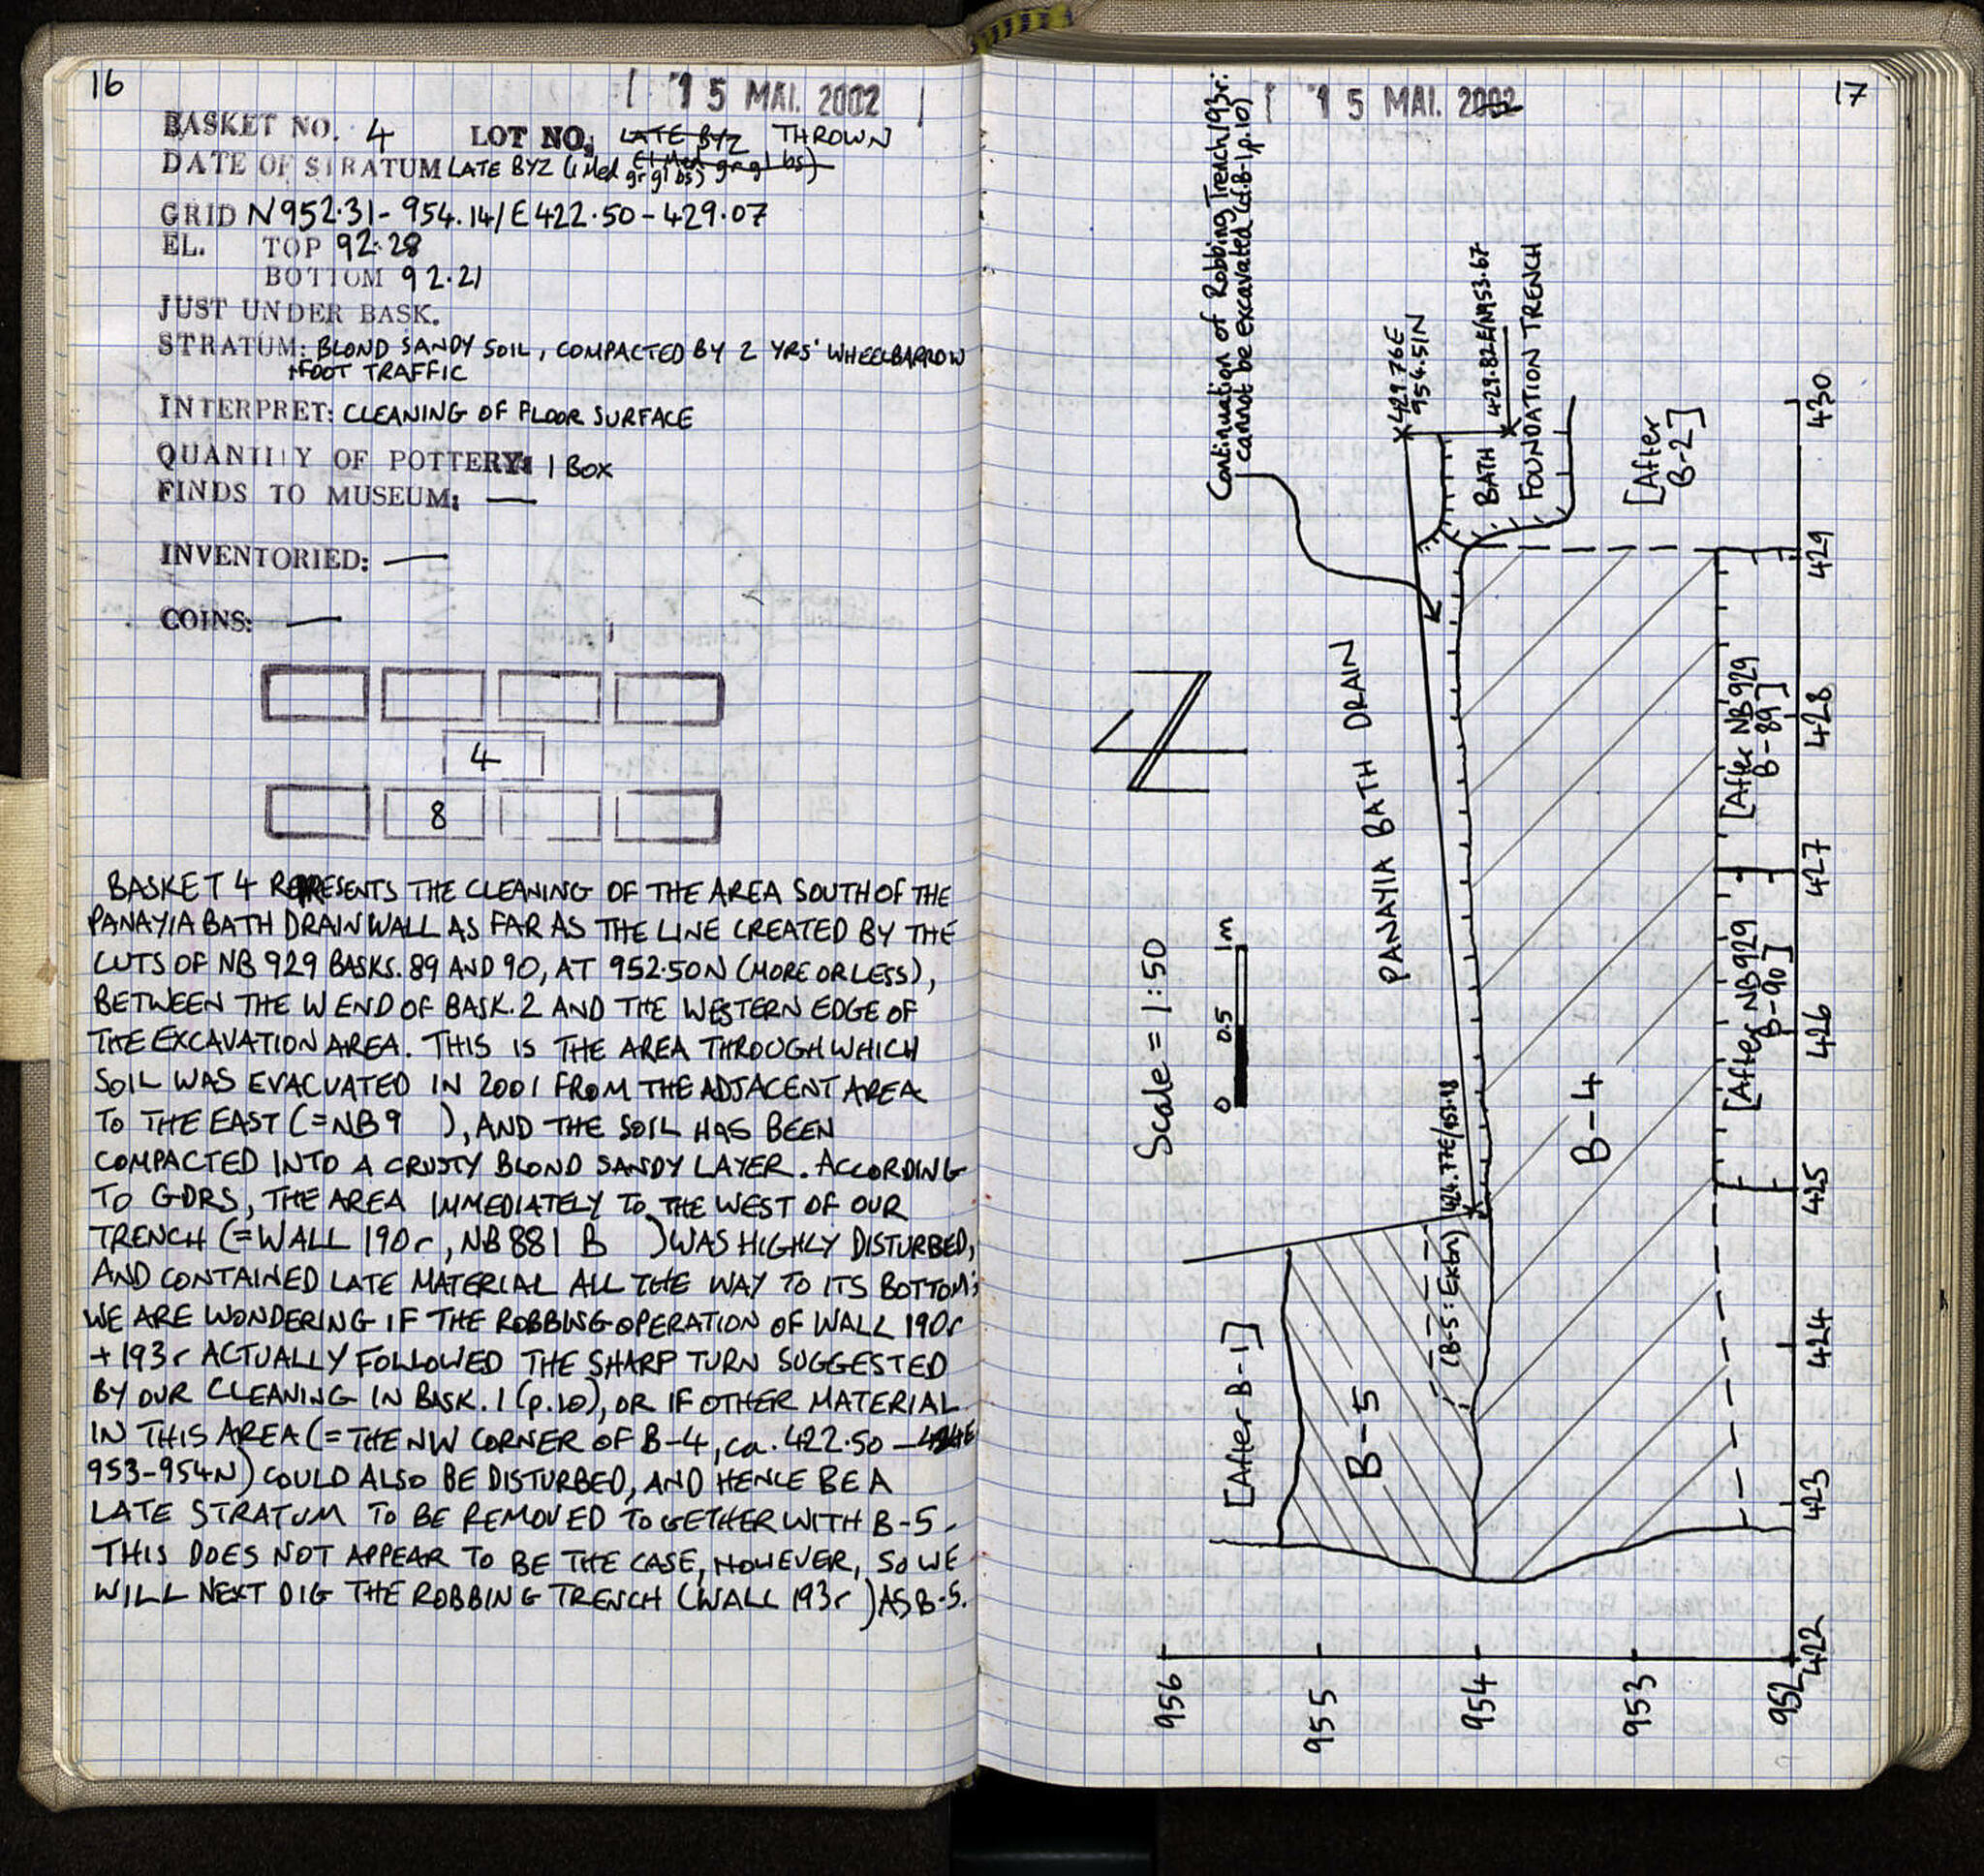 16
15 MAI. 2002
BASKET NO. 4 LOT NO: LATE BYZ THROWN
DATE OF STRATUM LATE BYZ (1 Med gr gl bs)
GRID N952.31-954.14/E422.50-429.07
EL. TOP 92.28
BOTTOM 92.21
JUST UNDER BASK.
STRATUM: BLOND SANDY SOIL, COMPACTED BY 2 YRS' WHEELBARROW
+FOOT TRAFFIC
INTERPRET: CLEANING OF FLOOR SURFACE
QUANTITY OF POTTERY: 1 BOX
FINDS TO MUSEUM: —
INVENTORIED: —
COINS: —
4
8
BASKET 4 REPRESENTS THE CLEANING OF THE AREA SOUTH OF THE
PANAYIA BATH DRAIN WALL AS FAR AS THE LINE CREATED BY THE
CUTS OF NB 929 BASKS. 89 AND 90, AT 952.50N (MORE OR LESS),
BETWEEN THE W END OF BASK. 2 AND THE WESTERN EDGE OF
THE EXCAVATION AREA. THIS IS THE AREA THROUGH WHICH
SOIL WAS EVACUATED IN 2001 FROM THE ADJACENT AREA
TO THE EAST (=NB 9 ), AND THE SOIL HAS BEEN
COMPACTED INTO A CRUSTY BLOND SANDY LAYER. ACCORDING
TO GDRS, THE AREA IMMEDIATELY TO THE WEST OF OUR
TRENCH (=WALL 190r, NB 881 B ) WAS HIGHLY DISTURBED,
AND CONTAINED LATE MATERIAL ALL THE WAY TO ITS BOTTOM;
WE ARE WONDERING IF THE ROBBING OPERATION OF WALL 190r
+193r ACTUALLY FOLLOWED THE SHARP TURN SUGGESTED
BY OUR CLEANING IN BASK. 1 (p.10), OR IF OTHER MATERIAL
IN THIS AREA (=THE NW CORNER OF B-4, ca. 422.50-424E
953-954N) COULD ALSO BE DISTURBED, AND HENCE BE A
LATE STRATUM TO BE REMOVED TOGETHER WITH B-5.
THIS DOES NOT APPEAR TO BE THE CASE, HOWEVER, SO WE
WILL NEXT DIG THE ROBBING TRENCH (WALL 193r) AS B-5.
17
15 MAI. 2002
Continuation of Robbing Trench 193r:
cannot be excavated (cf. B-1 p.10)
429.76E
954.51N
429.82E/N953.67
BATH
FOUNDATION TRENCH
[After
B-2]
PANAYIA BATH DRAIN
N
Scale = 1:50
0 0.5 1m
[After NB 929
B-89]
[After NB 929
B-90]
B-4
424.77E/953.98
(B-5: Extn)
[After B-1]
B-5
430
429
428
427
426
425
424
423
422
956
955
954
953
952